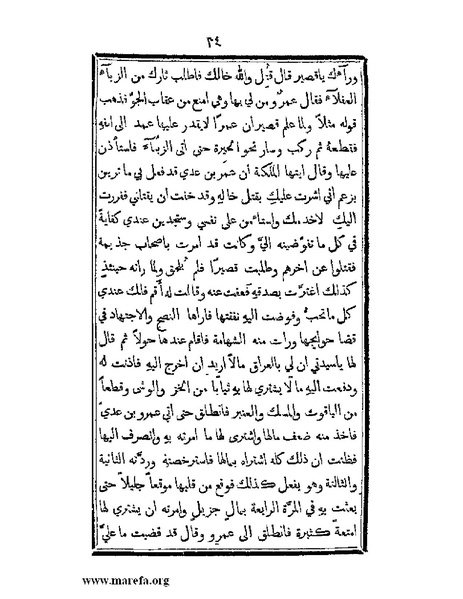 ٣٤
ورآءك يا قصير قال قُتِل والله خالك فاطلب ثارك من الزبآء
العقلآء فقال عمرٌو من لي بها وهي امنع من عقاب الجوّ فذهب
قوله مثلاً ولما علم قصير ان عمرًا لا يقدر عليها عمد الى انفهِ
فقطعهُ ثم ركب وسار نحو الحيرة حتى اتى الزبّاء فاستأذن
عليها وقال ايتها الملكة ان عمر بن عدي قد فعل بي ما ترين
بزعم اني اشرت عليكِ بقتل خالهِ وقد خفت ان يقتلني ففررت
اليكِ لاخدمك واستامن على نفسي وستجدين عندي كفاية
في كل ما تفوضينه اليَّ وكانت قد امرت باصحاب جذيمة
فقتلوا عن اخرهم وطلبت قصيرًا فلم يُلحق ولما راته حينئذٍ
كذلك اغترّت بصدقهِ فعفت عنه وقالت له أقم فلك عندي
كل ما تحبّ وفوضت اليهِ نفقتها فاراها النصح والاجتهاد في
قضا حوايجها ورات منه الشهامة فاقام عندها حولاً ثم قال
لها يا سيدتي ان لي بالعراق مالاً اريد ان اخرج اليهِ فاذنت له
ودفعت اليهِ مالاً يشتري لها بهِ ثيابًا من الخز والوشى وقطعاً
من الياقوت والمسك والعنبر فانطلق حتى اتى عمرو بن عديّ
فاخذ منه ضعف مالها واشترى لها ما امرته بهِ وانصرف اليها
فظنت ان ذلك كله اشتراه بمالها فاسترخصتهُ وردّته الثانية
والثالثة وهو يفعل كذلك فوقع من قلبها موقعاً جليلاً حتى
بعثت بهِ في المرّة الرابعة بمال جزيل وامرته ان يشتري لها
امتعةً كثيرة فانطلق الى عمرو وقال قد قضيت ما عليَّ
www.marefa.org